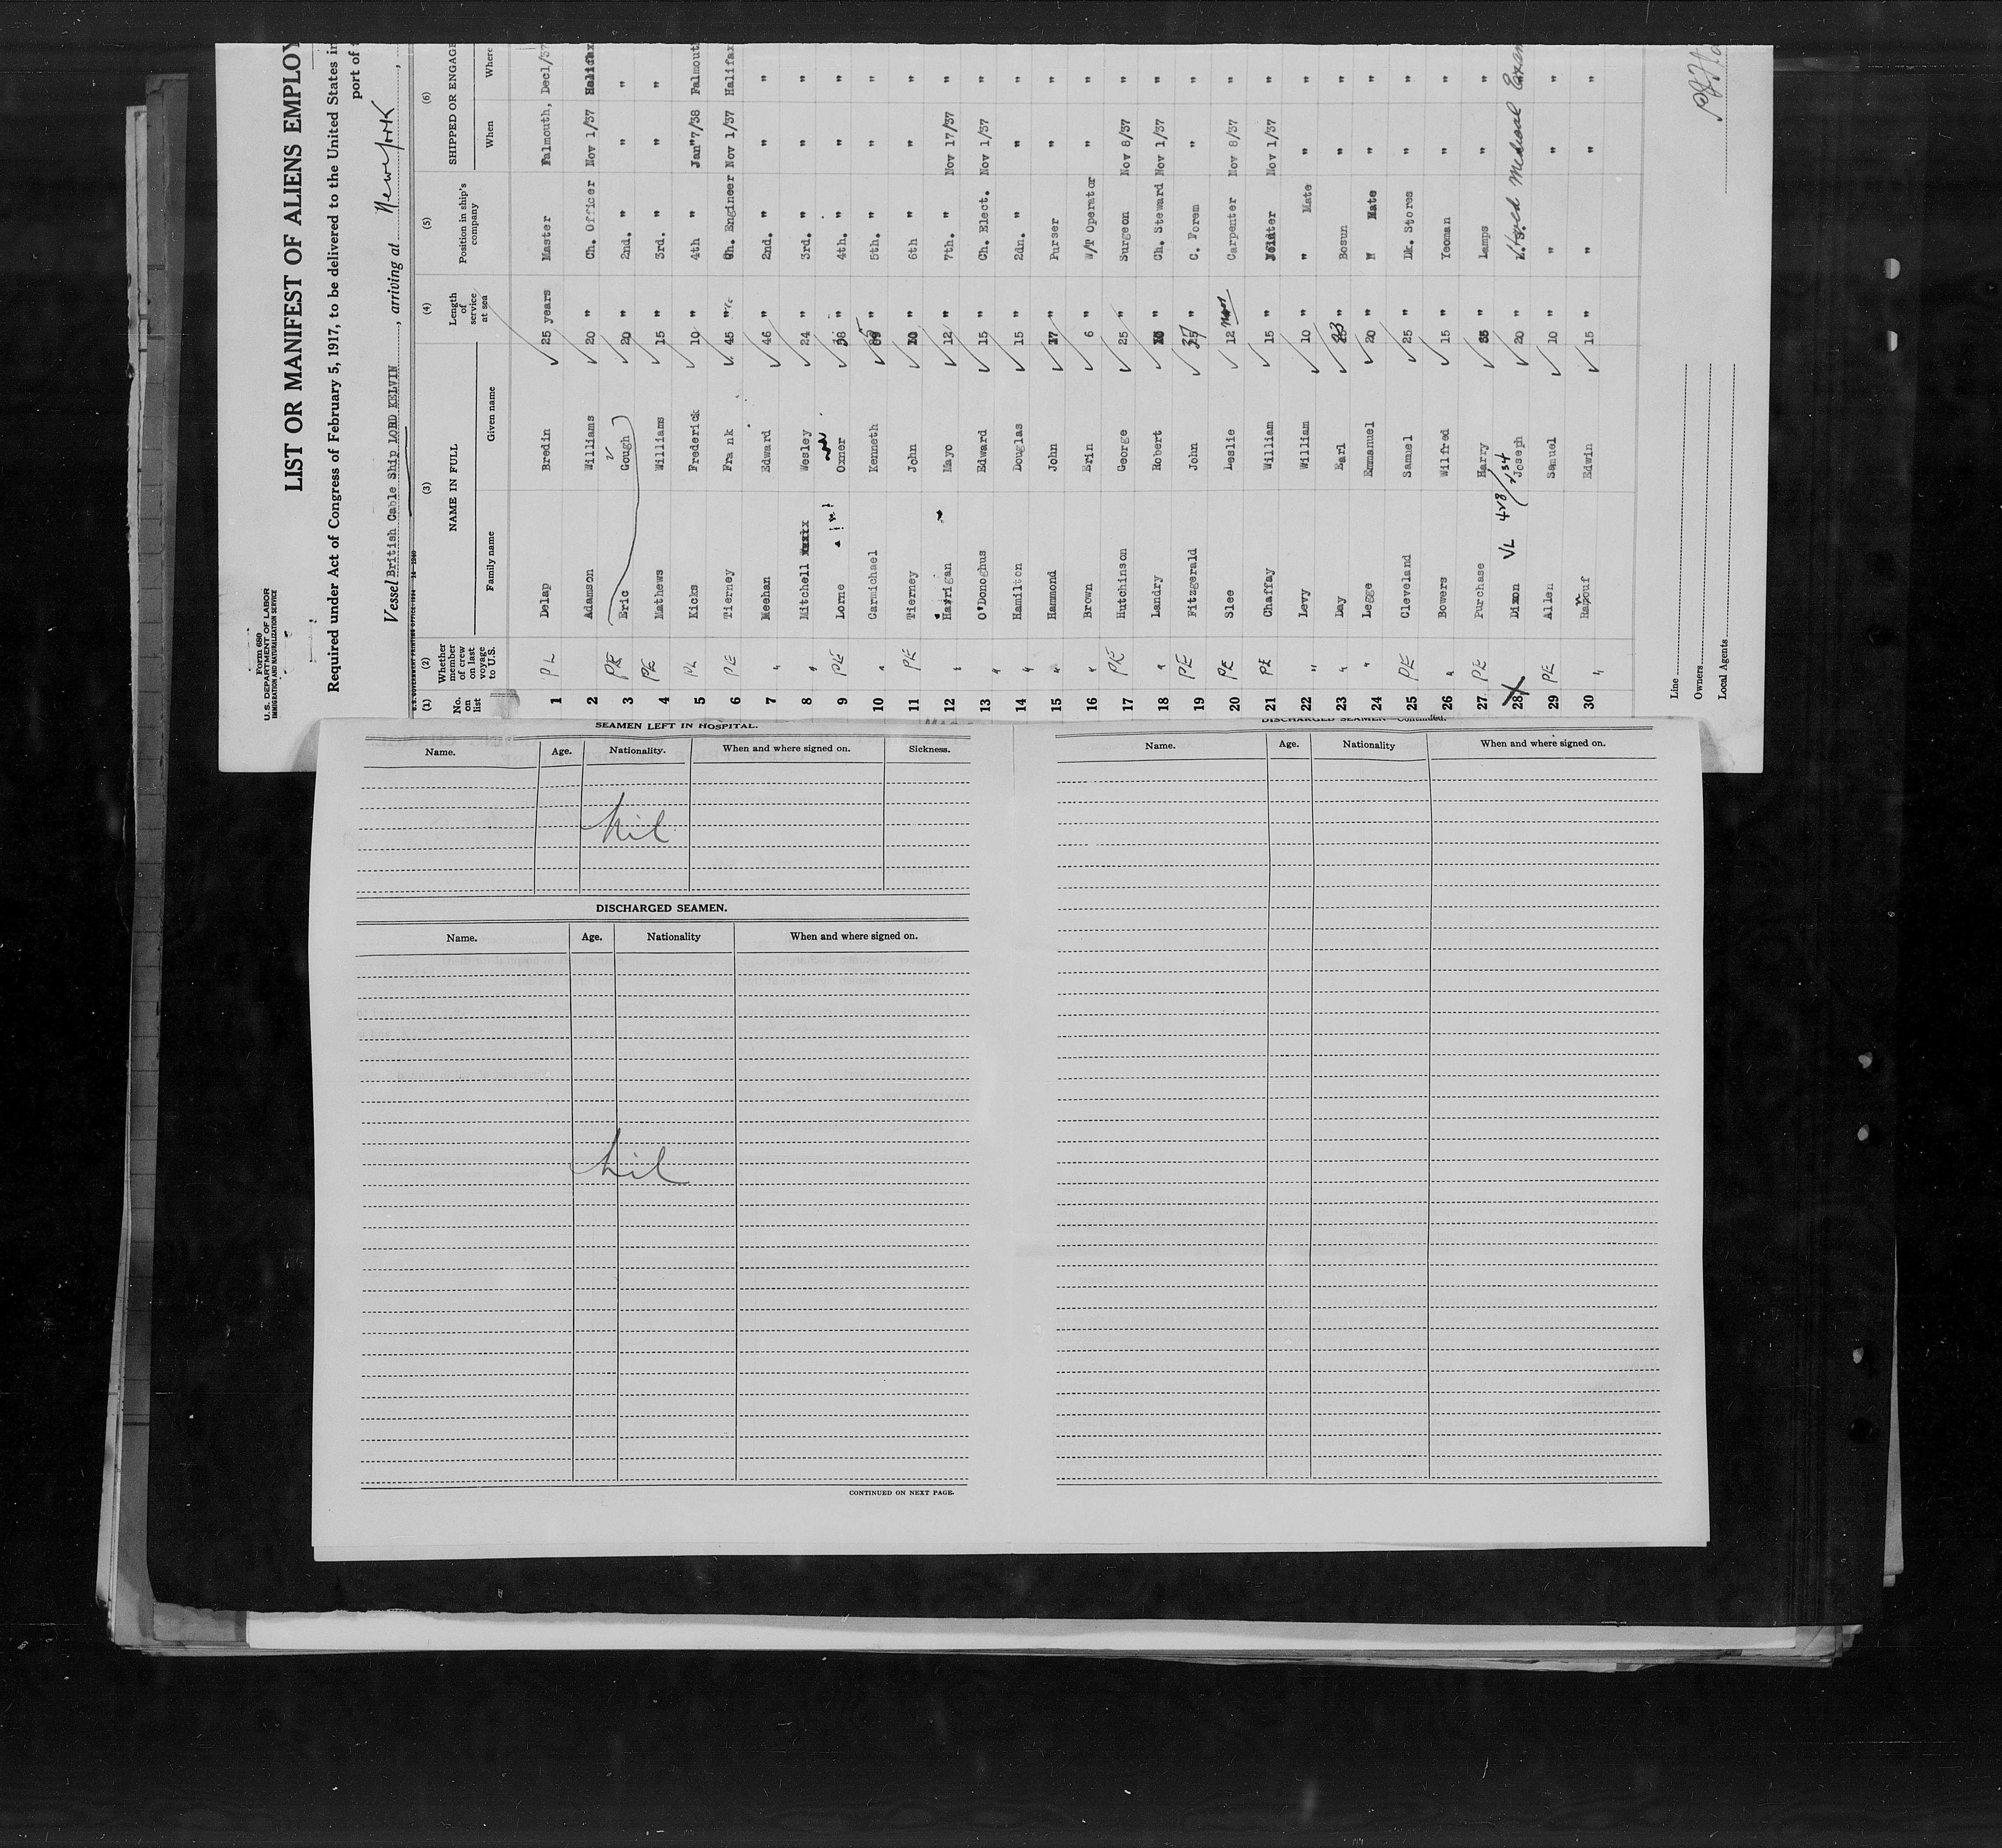 Form 680
U.S. DEPARTMENT OF LABOR
IMMIGRATION AND NATURALIZATION SERVICE
LIST OR MANIFEST OF ALIENS EMPLOY
Required under Act of Congress of February 5, 1917, to be delivered to the United States in
port of
Vessel British Cable Ship LORD KELVIN, arriving at New York,
(1) (2) (3) (4) (5) (6)
No. on list Whether member of crew on last voyage to U.S. NAME IN FULL Length of service at sea Position in ship's company SHIPPED OR ENGAGE
Family name Given name When Where
1 PL Delap Bredin 25 years Master Falmouth, Dec1/37
2 Adamson Williams 20 " Ch. Officer Nov 1/37 Halifax
3 PE Eric Gough 20 " 2nd. " " "
4 PE Mathews Williams 15 " 3rd. " " "
5 PL Kicks Frederick 10 " 4th " Jan"7/38 Falmouth
6 PE Tierney Frank 45 " Ch. Engineer Nov 1/37 Halifax
7 " Meehan Edward 46 " 2nd. " " "
8 " Mitchell Wesley 24 " 3rd. " " "
9 PE Lorne Omer 38 " 4th. " " "
10 " Carmichael Kenneth " 5th. " " "
11 PE Tierney John 10 " 6th " " "
12 " Harrigan Mayo 12 " 7th. " Nov 17/37 "
13 " O'Donoghus Edward 15 " Ch. Elect. Nov 1/37 "
14 " Hamilton Douglas 15 " 2dn. " " "
15 " Hammond John 17 " Purser " "
16 " Brown Erin 6 " W/T Operator " "
17 PE Hutchinson George 25 " Surgeon Nov 8/37 "
18 " Landry Robert " Ch. Steward Nov 1/37 "
19 PE Fitzgerald John 37 " C. Forem " "
20 PE Slee Leslie 12 Carpenter Nov 8/37 "
21 PE Chaffay William 15 " Nov 1/37 "
22 " Levy William 10 " " Mate " "
23 " Day Earl 23 " Bosun " "
24 " Legge Emmanuel 20 " " Mate " "
25 PE Cleveland Samuel 25 " Dk. Stores " "
26 " Bowers Wilfred 15 " Yeoman " "
27 PE Purchase Harry 35 " Lamps " "
28 X Dixon VL 428/134 Joseph 20 " Medical Exam
29 PE Allen Samuel 10 " " " "
30 " Edwin 15 " " " "
Line
Owners
Local Agents
SEAMEN LEFT IN HOSPITAL.
Name. Age. Nationality. When and where signed on. Sickness.
nil
DISCHARGED SEAMEN.
Name. Age. Nationality When and where signed on.
nil
CONTINUED ON NEXT PAGE.
DISCHARGED SEAMEN—Continued.
Name. Age. Nationality When and where signed on.